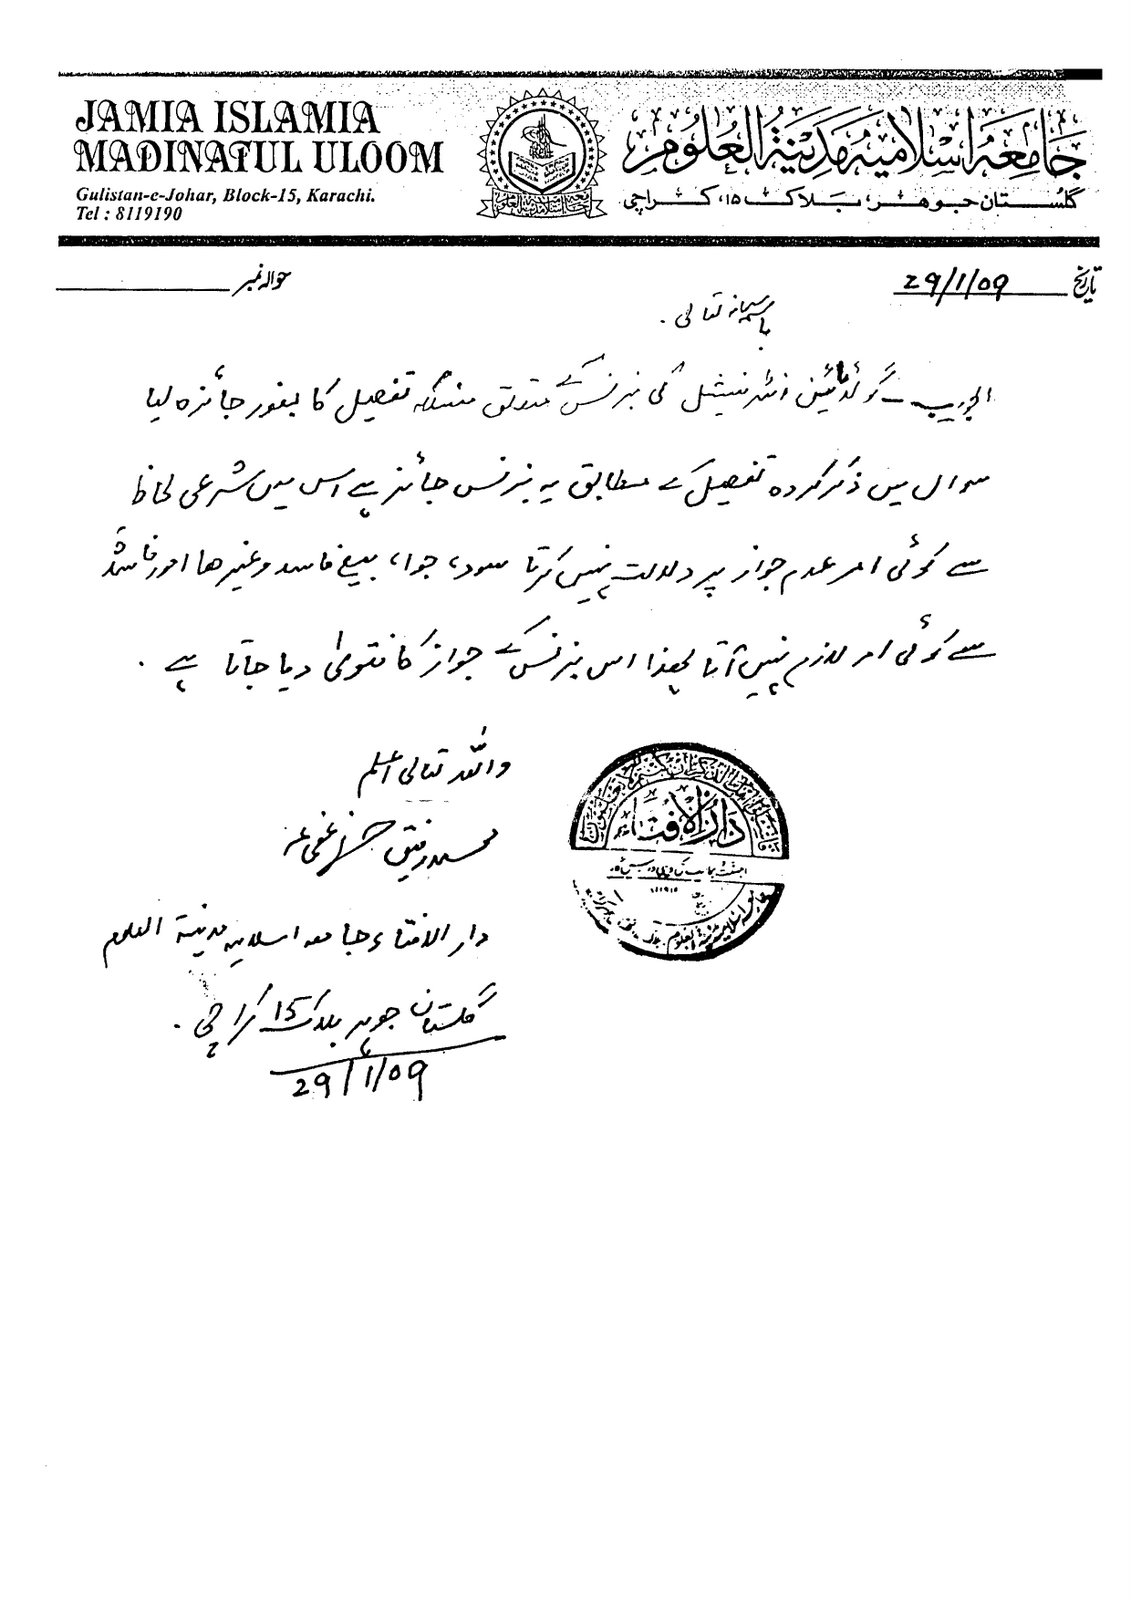 JAMIA ISLAMIA
MADINATUL ULOOM
Gulistan-e-Johar, Block-15, Karachi.
Tel : 8119190
جامعہ اسلامیہ مدینۃ العلوم
گلستان جوہر، بلاک ۱۵، کراچی
تاریخ 29/1/09
حوالہ نمبر
باسمہ سبحانہ تعالی .
الجواب ۔ گولڈ مائین انٹرنیشنل کی بزنس کے متعلق منسلکہ تفصیل کا بغور جائزہ لیا
سوال میں ذکر کردہ تفصیل کے مطابق یہ بزنس جائز ہے اس میں شرعی لحاظ
سے کوئی امر عدم جواز پر دلالت نہیں کرتا سود، جوا، بیع فاسد وغیرھا امور فاسدۃ
سے کوئی امر لازم نہیں آتا لھذا اس بزنس کے جواز کا فتویٰ دیا جاتا ہے .
واللہ تعالی اعلم
محمد رفیق عفی عنہ
دار الافتاء جامعہ اسلامیہ مدینۃ العلوم
گلستان جوہر بلاک 15 کراچی .
29/1/09
دار الافتاء
جامعہ اسلامیہ مدینۃ العلوم